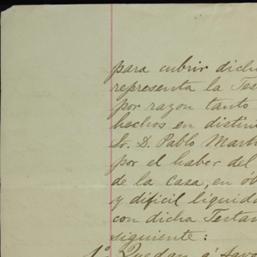 para cubrir dich
representa la Tes
por razon tanto
hechos en distin
Sr. D. Pablo Mart
por el haber del
de la Casa, en ob
y dificil liquida
con dicha Testa
siguiente:
1º Quedan á favo